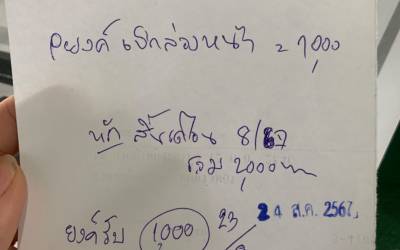 ยงค์ เบิกล่วงหน้า = 1,000
หัก สิ้นเดือน 8/67
รวม 2,000 บาท
ยงค์รับ 1,000 23
24 ส.ค. 2567